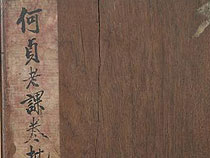 何貞老課卷